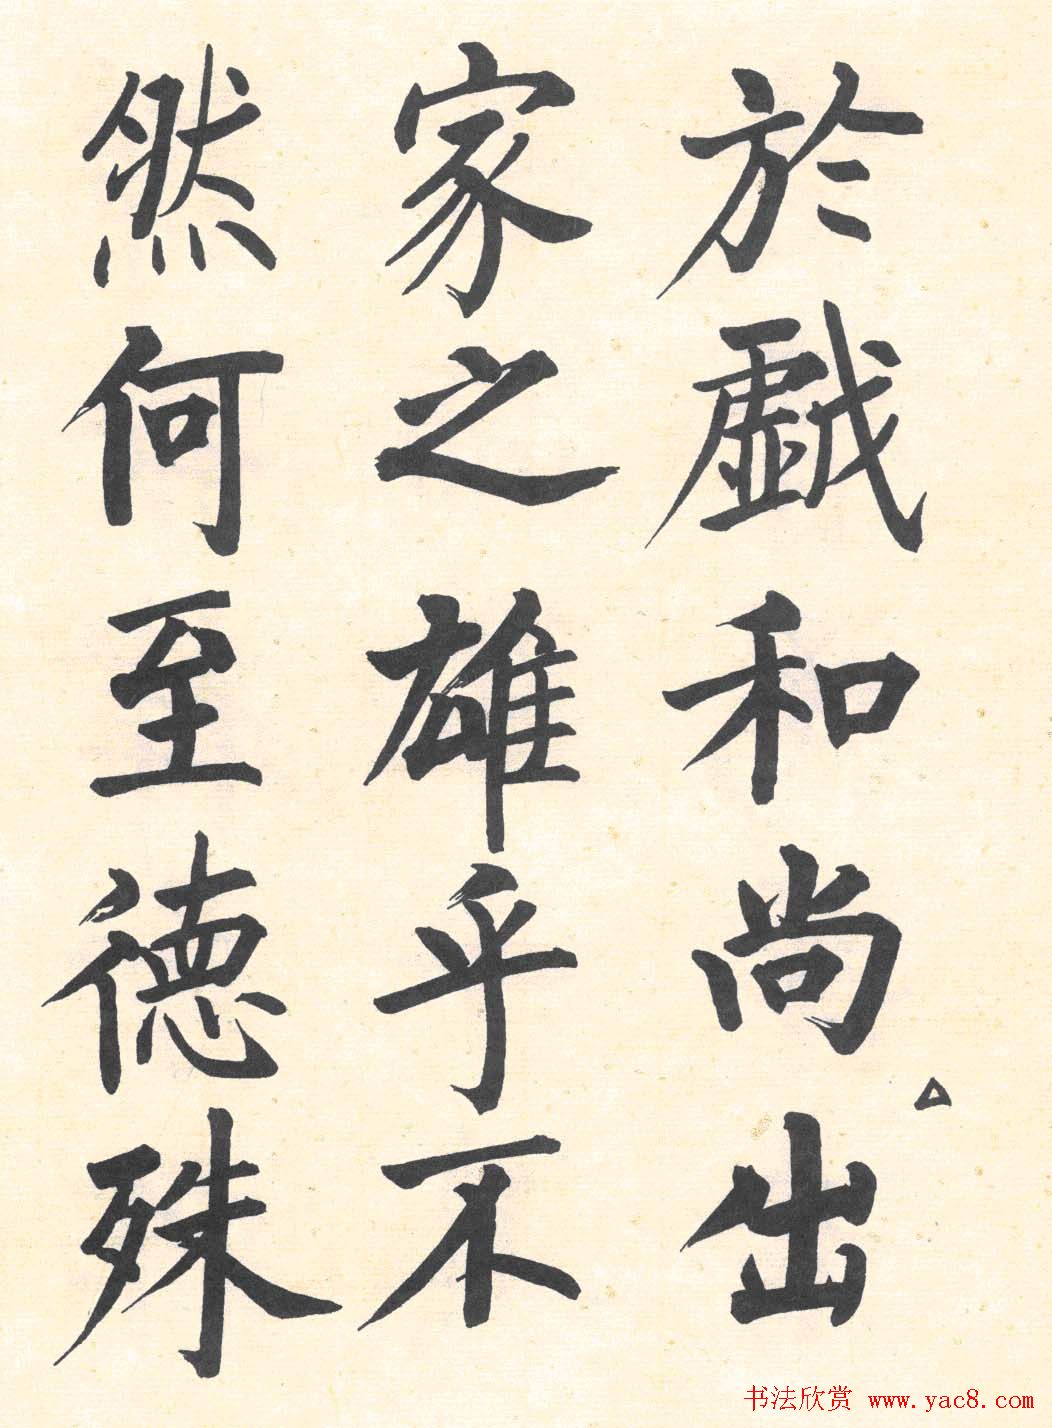 於戯和尚出
家之雄乎不
然何至徳殊
书法欣赏 www.yac8.com